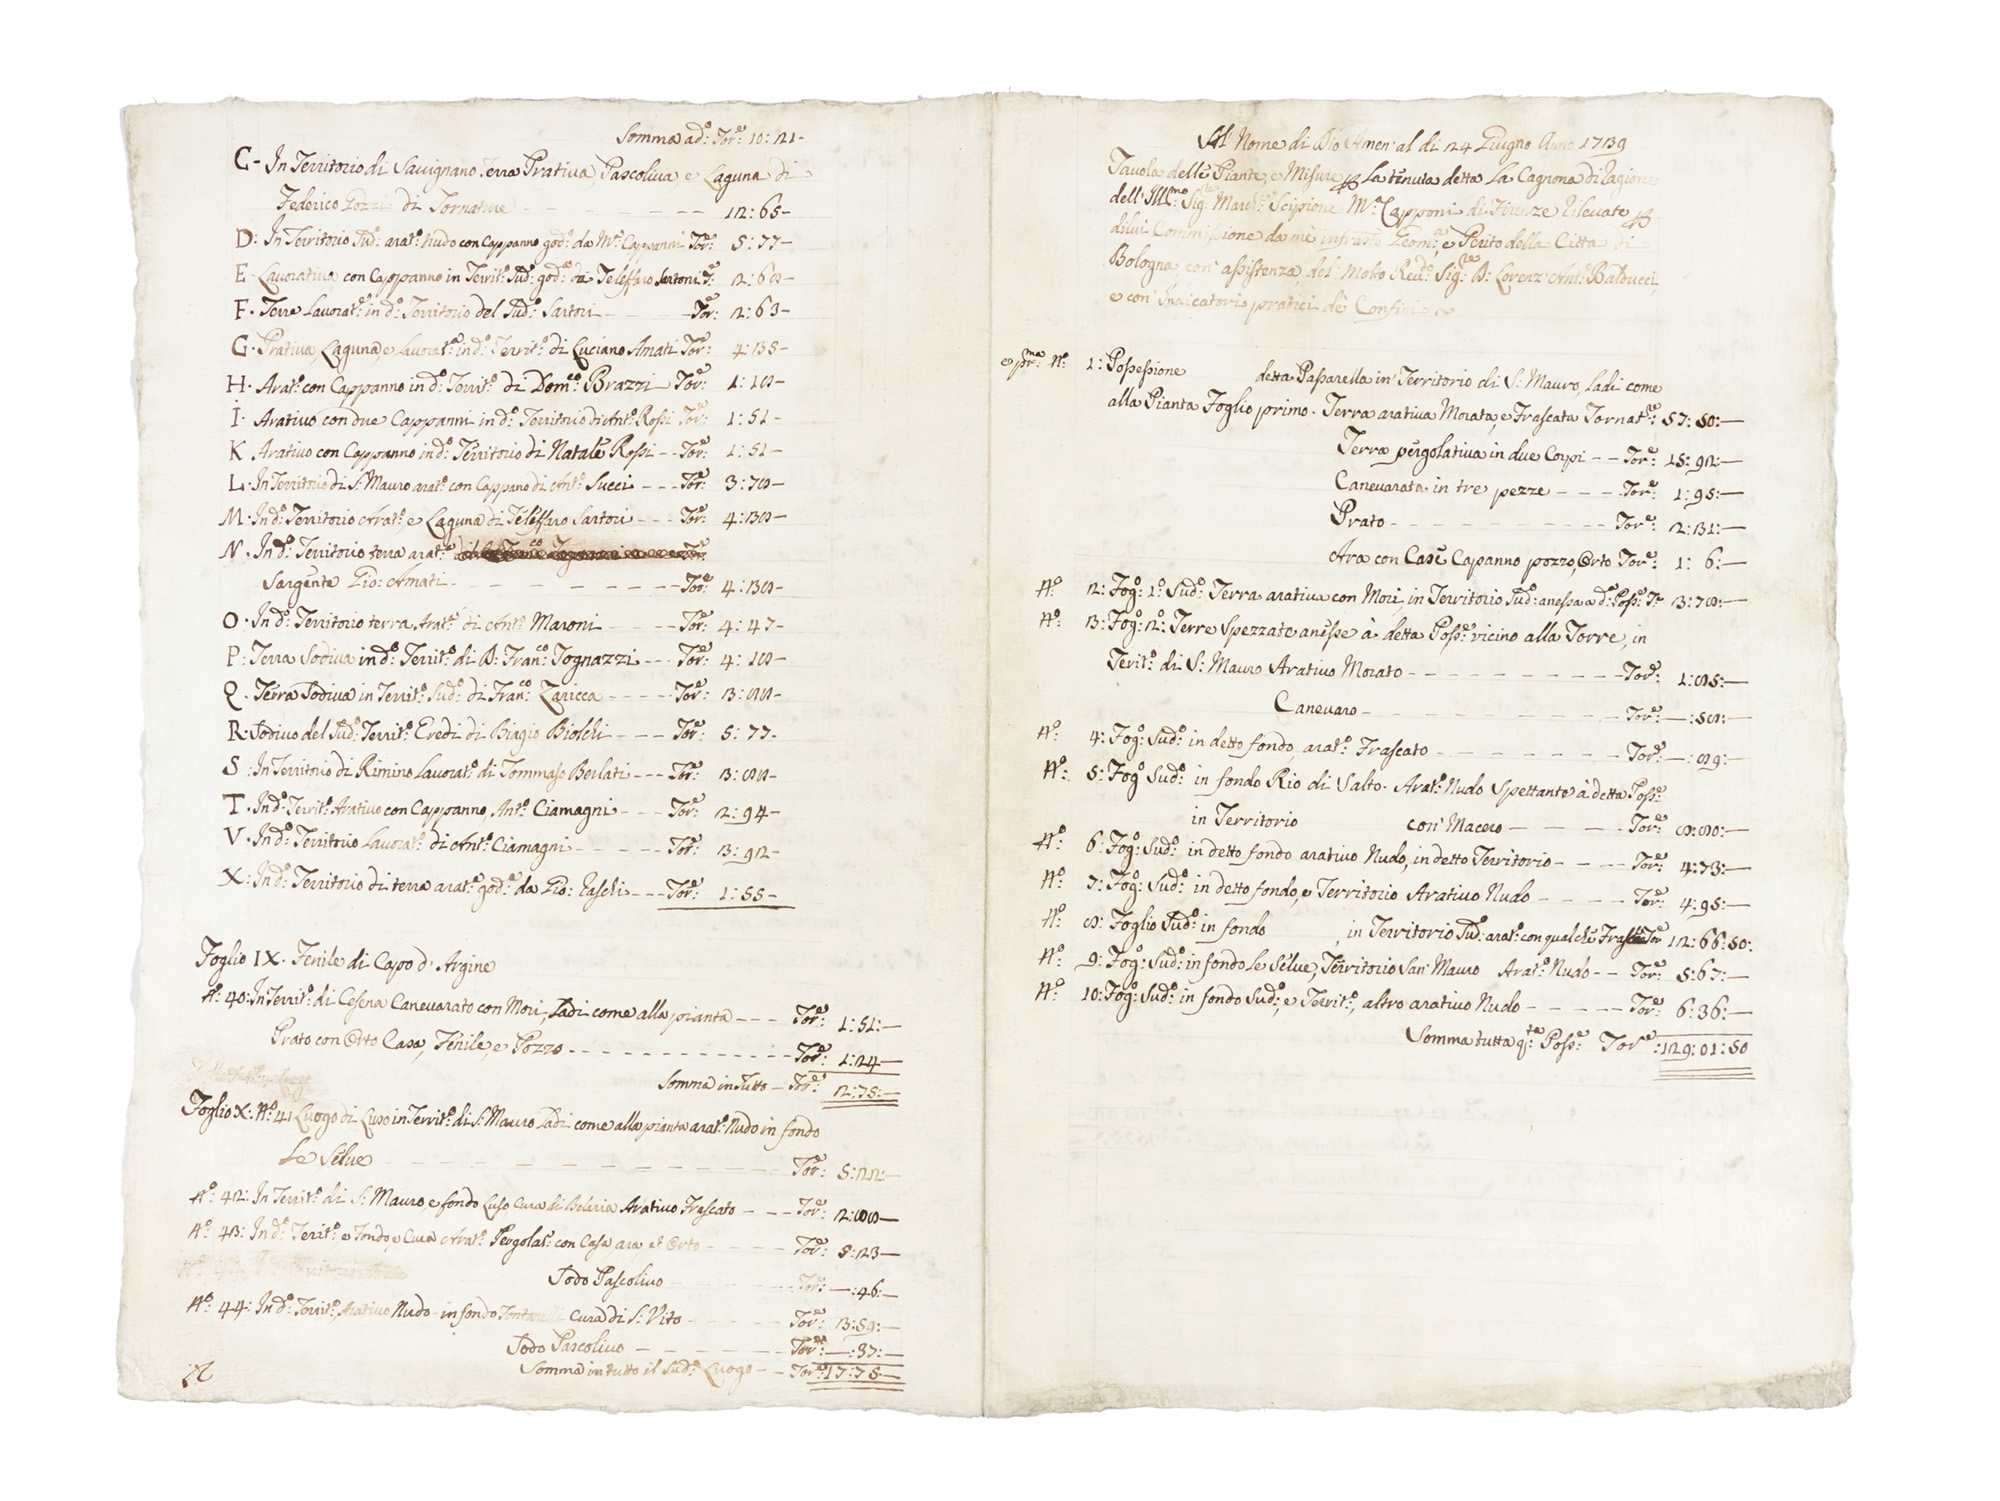 Somma ad.o Tor.e 10:21-
C- In Territorio di Savignano Terra Prativa, Pascoliva, e Laguna di
Federico Pozzi di Tornature - - - - - - 12:65-
D: In Territorio Sud.o arat.o Nudo con Cappanno god.o da M.r Cappanni Tor.e 5:77-
E- Lavorativa con Cappanno in Territ.o Sud.o god.o da Teleffaro Sartoni T.e 2:68-
F- Terre Lavorat.e in d.o Territorio del Sud.o Sartori - - - Tor.e 2:63-
G- Prativa, Laguna, e lavorat.a in d.o Territ.o di Luciano Amati Tor.e 4:35-
H- Arat.o con Cappanno in d.o Territ.o di Dom.co Brazzi - Tor.e 1:18-
I- Arativo con due Cappanni in d.o Territorio di Ant.o Rossi Tor.e 1:51-
K Arativo con Cappanno in d.o Territorio di Natale Rossi - - Tor.e 1:51-
L- In Territorio di S. Mauro arat.o con Cappano di Ant.o Succi - - - Tor.e 3:78-
M- In d.o Territorio Arat.o, e Laguna di Teleffaro Sartori - - - Tor.e 4:38-
N. In d.o Territorio terra arat.a
Sargente Gio: Amati - - - - - - - Tor.e 4:38-
O- In d.o Territorio terra Arat.a di Ant.o Maroni - - - - Tor.e 4:47-
P: Terra Sodiva in d.o Territ.o di D: Fran.co Tognazzi - - - Tor.e 4:18-
Q- Terra Sodiva in Territ.o Sud.o di Fran.co Zaricca - - - - Tor.e 3:88-
R: Sodivo del Sud.o Territ.o Eredi di Biagio Biolchi - - - - Tor.e 5:77-
S: In Territorio di Rimino Lavorat.o di Tommaso Berlati - - - Tor.e 3:88-
T- In d.o Territ.o Arativo con Cappanno, Ant.o Ciamagni - - - Tor.e 2:94-
V- In d.o Territorio Lavorat.o di Ant.o Ciamagni - - - - - Tor.e 3:92-
X: In d.o Territorio di terra arat.a god.a da Gio: Paschi - - - Tor.e 1:55-
Foglio IX. Fenile di Capo d'Argine
N.o 40: In Territ.o di Cesena Canevarato con Mori, Ladi come alla pianta - - - Tor.e 1:51:-
Prato con Orto Casa, Fenile, e Pozzo - - - - - - - - - - - Tor.e 1:24-
Somma in Tutto - Tor.e 2:75:-
Foglio X: N.o 41 Luogo di Luso in Territ.o di S. Mauro Ladi come alla pianta arat.o Nudo in fondo
Le Selve - - - - - - - - - - - - Tor.e 5:22:-
N.o 42: In Territ.o di S. Mauro, e fondo Luso Cura di Belaria Arativo Frascato - - - Tor.e 2:88-
N.o 43: In d.o Territ.o e Fondo, e Cura Arat.o Pergolat.o con Casa, ara, et Orto - - - - Tor.e 5:23-
Sodo Pascolivo - - - - - - Tor.e -:46:-
N.o 44: In d.o Territ.o Arativo Nudo in fondo Fontanelli Cura di S. Vito - - - - - Tor.e 3:59:-
Sodo Pascolivo - - - - - - Tor.e -:37:-
Somma in tutto il Sud.o Luogo - - Tor.e 17:75:-
Al Nome di Dio Amen al di 24 Giugno Anno 1739
Tavola delle Piante, e Misure p La tenuta detta La Cagnona di ragione
dell' Ill.mo Sig.re March.e Scipione M.a Capponi di Firenze rilevate p
di lui Commissione da me infrasto Geom.a e Perito della Citta di
Bologna, con assistenza, del Molto Rev.o Sig.re D: Lorenz' Ant.o Balducci,
e con Indicatori pratici de Confini
e pr.ma N.o 1: Possessione detta Passarella in Territorio di S: Mauro, Ladi come
alla Pianta Foglio primo. Terra arativa Morata, e Frascata Tornat.re 57:80:-
Terra pergolativa in due Corpi - - Tor.e 15:92:-
Canevarata in tre pezze - - - - Tor.e 1:95:-
Prato - - - - - - - - - - Tor.e 2:31:-
Ara con Case Capanno pozzo, Orto Tor.e 1:6:-
N.o 2: Fog.o 1.o Sud.o Terra arativa con Mori in Territorio Sud.o anessa a d.a Poss.e T.e 3:78:-
N.o 3: Fog.o 2.o Terre Spezzate anesse à detta Poss.e vicino alla Torre, in
Territ.o di S. Mauro Arativo Morato - - - - - - - - - - Tor.e 1:85:-
Canevaro - - - - - - - - - Tor.e -:58:-
N.o 4: Fog.o Sud.o in detto fondo, arat.o Frascato - - - - - - - - Tor.e -:89:-
N.o 5: Fog.o Sud.o in fondo Rio di Salto. Arat.o Nudo Spettante à detta Poss.e
in Territorio con Macero - - - - - Tor.e 8:80:-
N.o 6: Fog.o Sud.o in detto fondo arativo Nudo, in detto Territorio - - - - Tor.e 4:73:-
N.o 7: Fog.o Sud.o in detto fondo, e Territorio Arativo Nudo - - - - - Tor.e 4:95:-
N.o 8: Foglio Sud.o in fondo , in Territorio Sud.o arat.o con qualche Tor.e 12:66:50:
N.o 9: Fog.o Sud.o in fondo le Selve, Territorio San Mauro Arat.o Nudo - - Tor.e 5:67:-
N.o 10: Fog.o Sud.o in fondo Sud.o, e Territ.o, altro arativo Nudo - - - - - Tor.e 6:36:-
Somma tutta q.ta Poss.e Tor.e :129:01:50